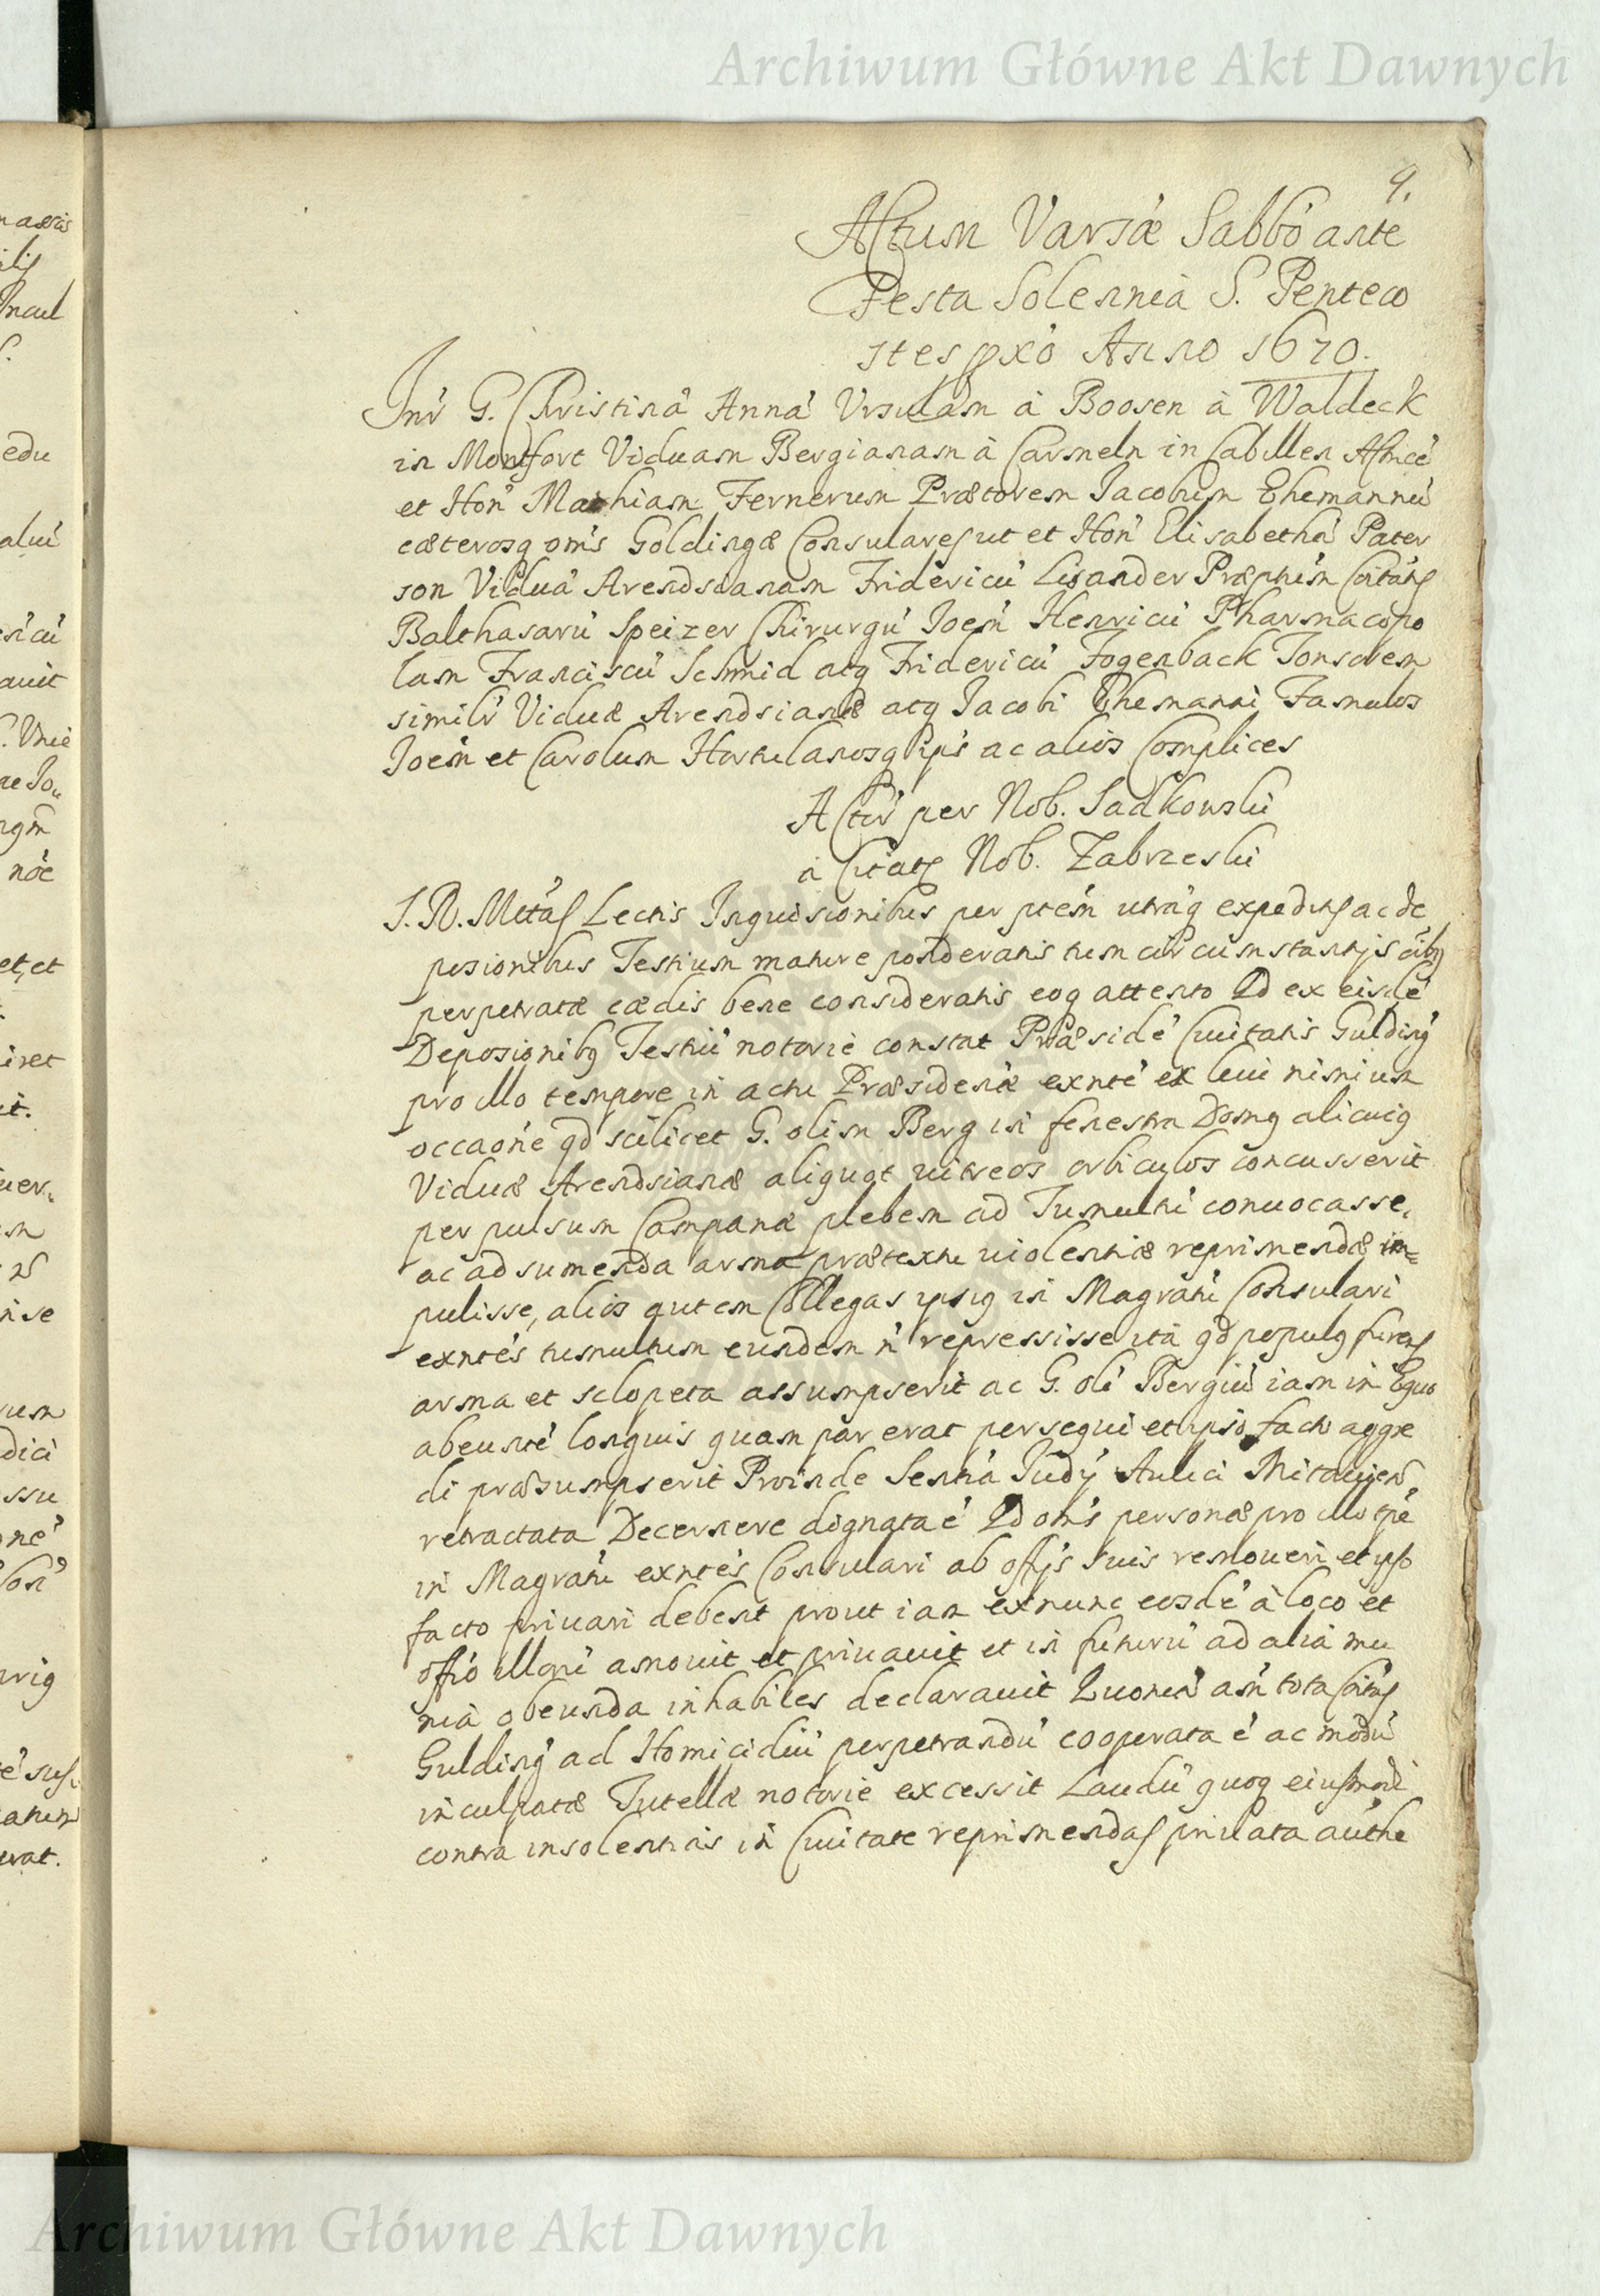 Archiwum Główne Akt Dawnych
9.
Actum Varsæ Sabbo ante
Festa Solennia S. Penteco
stes pxo Anno 1670.
Inr G. Christinā Annā Vrsulam à Boosen à Waldeck
in Montfort Viduam Bergianam à Carmeln in Cabillen Actricē
et Hon Mathiam Fernerum Prætorem Jacobum Ehemannū
cæterosq omīs Goldingæ Consulares ut et Hon Elisabethā Pater
son Viduā Arendsianam Fridericū Lisander Præphtm Cītātis
Balthasarū Speizer Chirurgū Joem Henricū Pharmacopo
lam Franciscū Schmid atq Fridericū Fogenback Tonsorem
similr Viduæ Arendsianæ atq Jacobi Ehemanni Famulos
Joem et Carolum Hortulanosq ipīs ac alios Complices
Actū per Nob. Sadkowski
à Citatis Nob. Zabrzeski
S. R. Mttās Lectis Inquisionibus per ptem utrāq expeditis ac de
posionibus Testium mature ponderatis tum circumstantijs oībq
perpetratæ cædis bene consideratis eoq attento Qd ex eisdē
Deposionibq Testiū notorie constat Præsidē Civitatis Gulding
pro illo tempore in actu Præsidenæ exntē ex levi nimium
occaone qd scilicet G. olim Berg in fenestra Domq alicuiq
Viduæ Arendsianæ aliquot vitreos orbiculos concusserit
per pulsum Campanæ plebem ad Tumultū convocasse,
ac ad sumenda arma prætextu violentiæ reprimendæ im=
pulisse, alios autem Collegas ipsiq in Magratū Consulari
exntes tumultum eundem n̄ repressisse ità qd populq furens
arma et sclopeta assumpserit ac G. olī Bergiū iam in Equo
abeuntē longuis quam par erat persequi et ipso facto aggre
di præsumpserit Proinde Sentiā Judij Aulici Mitavien
retractata Decernere dignata ē Qd omīs personæ pro illo tpē
in Magratū exntes Consulari ab offijs suis removeri et ipso
facto privari debent prout iam exnunc eosdē à loco et
offio illorū amovit et privavit et in futurū ad alia mu
nia obeunda inhabiles declaravit Quoniā am tota Cītās
Gulding ad Homicidiū perpetrandū cooperata ē ac modū
inculpatæ Tutellæ notorie excessit Laudū quoq eiusmodi
contra insolentias in Civitate reprimendas privata autho
Archiwum Główne Akt Dawnych